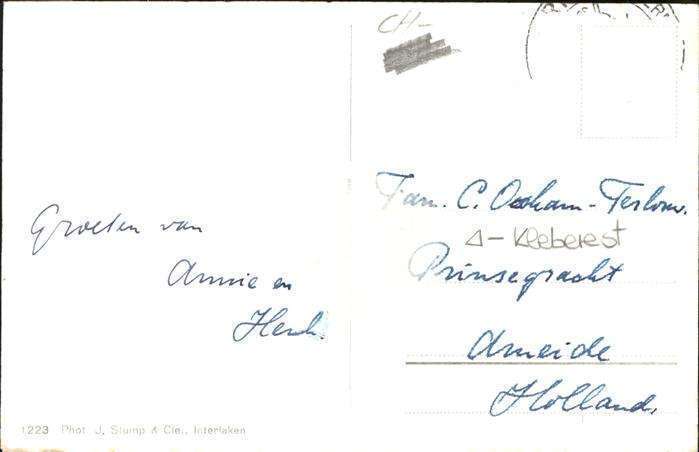 CH-
Groeten van
Annie en
Henk.
Fam. C. Ockam-Terlouw.
Δ-Kleberest
Prinsegracht
Ameide
Holland.
1223 Phot. J. Stump & Cie., Interlaken